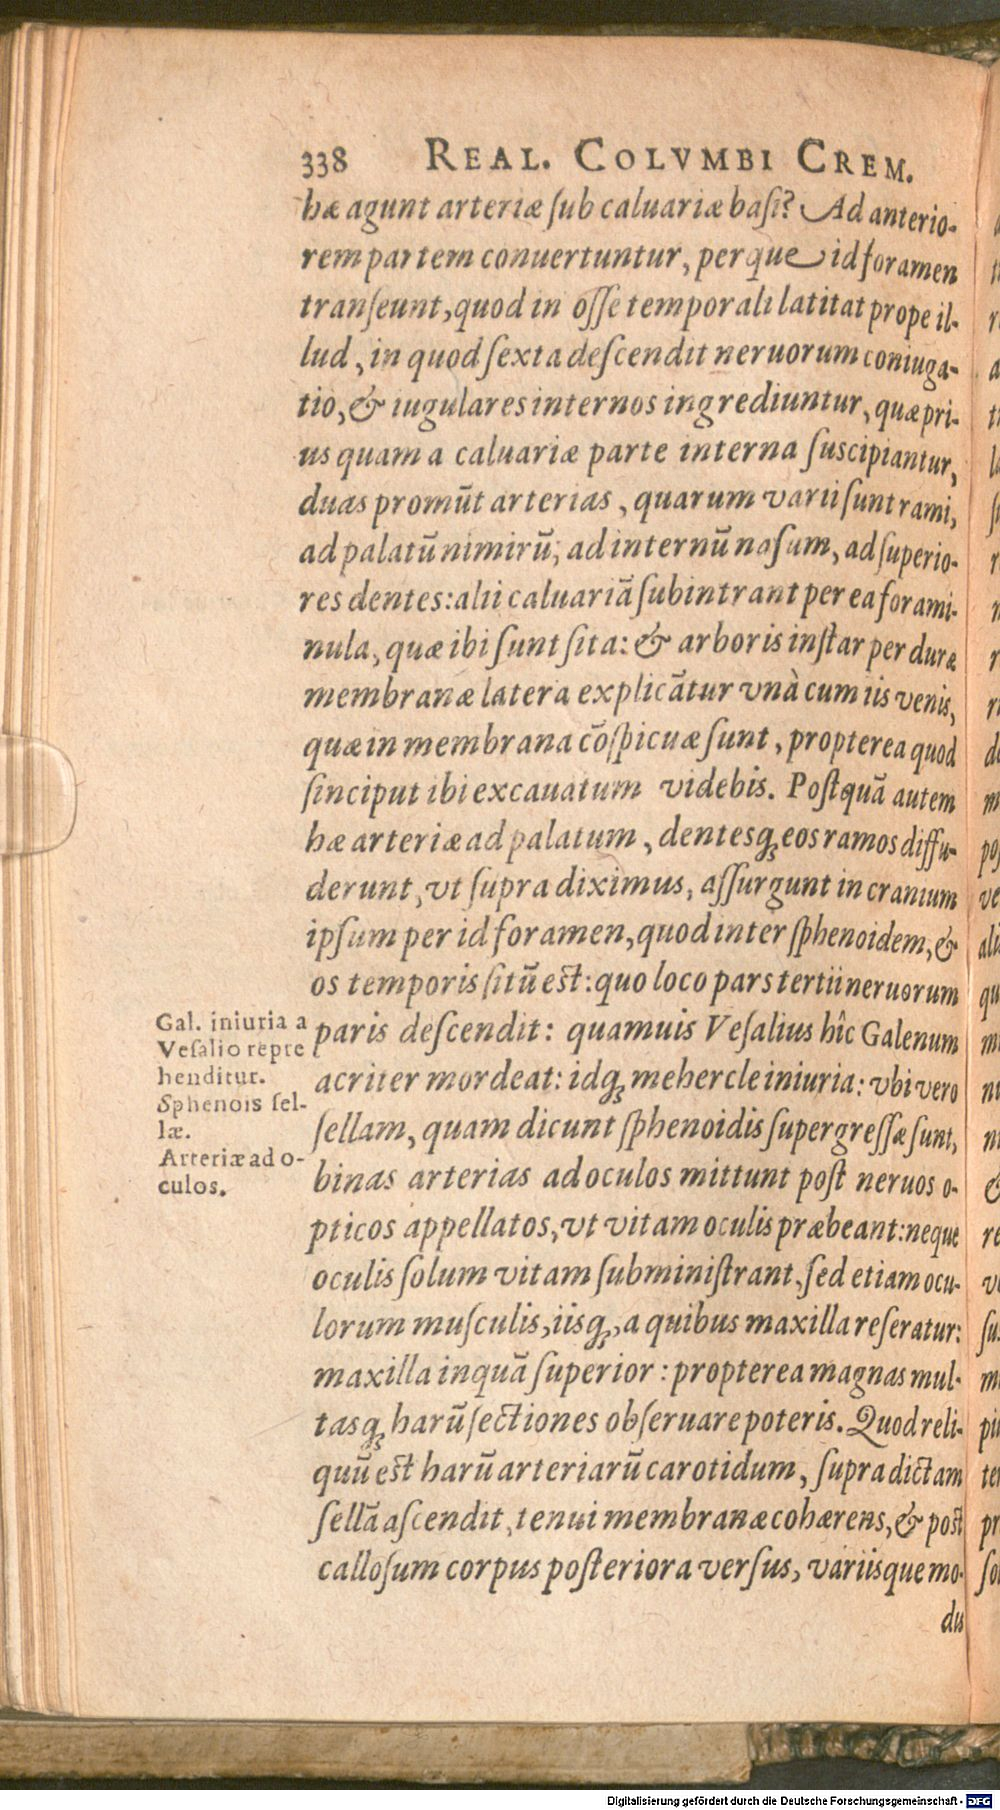 338 REAL. COLVMBI CREM.
hæ agunt arteriæ ſub caluariæ baſi? Ad anterio-
rem partem conuertuntur, perque id foramen
tranſeunt, quod in oſſe temporali latitat prope il-
lud, in quod ſexta deſcendit neruorum coniuga-
tio, & iugulares internos ingrediuntur, quæ pri-
us quam a caluariæ parte interna ſuscipiantur,
duas promūt arterias, quarum varii ſunt rami,
ad palatū nimirū, ad internū naſum, ad ſuperio-
res dentes: alii caluariā ſubintrant per ea forami-
nula, quæ ibi ſunt ſita: & arboris inſtar per duræ
membranæ latera explicātur vnà cum iis venis,
quæ in membrana cōſpicuæ ſunt, propterea quod
ſinciput ibi excauatum videbis. Poſtquā autem
hæ arteriæ ad palatum, dentesq; eos ramos diffu-
derunt, vt ſupra diximus, aſſurgunt in cranium
ipſum per id foramen, quod inter ſphenoidem, &
os temporis ſitū eſt: quo loco pars tertii neruorum
paris deſcendit: quamuis Veſalius hîc Galenum
acriter mordeat: idq; mehercle iniuria: vbi vero
ſellam, quam dicunt ſphenoidis ſupergreſſæ ſunt,
binas arterias ad oculos mittunt poſt neruos o-
pticos appellatos, vt vitam oculis præbeant: neque
oculis ſolum vitam ſubminiſtrant, ſed etiam ocu-
lorum muſculis, iisq;, a quibus maxilla reſeratur:
maxilla inquā ſuperior: propterea magnas mul-
tasq; harū ſectiones obſeruare poteris. Quod reli-
quū eſt harū arteriarū carotidum, ſupra dictam
ſellā aſcendit, tenui membranæ cohærens, & poſt
calloſum corpus poſteriora verſus, variisque mo-
dis
Gal. iniuria a
Veſalio repre
henditur.
Sphenois ſel-
læ.
Arteriæ ad o-
culos.
Digitalisierung gefördert durch die Deutsche Forschungsgemeinschaft - DFG